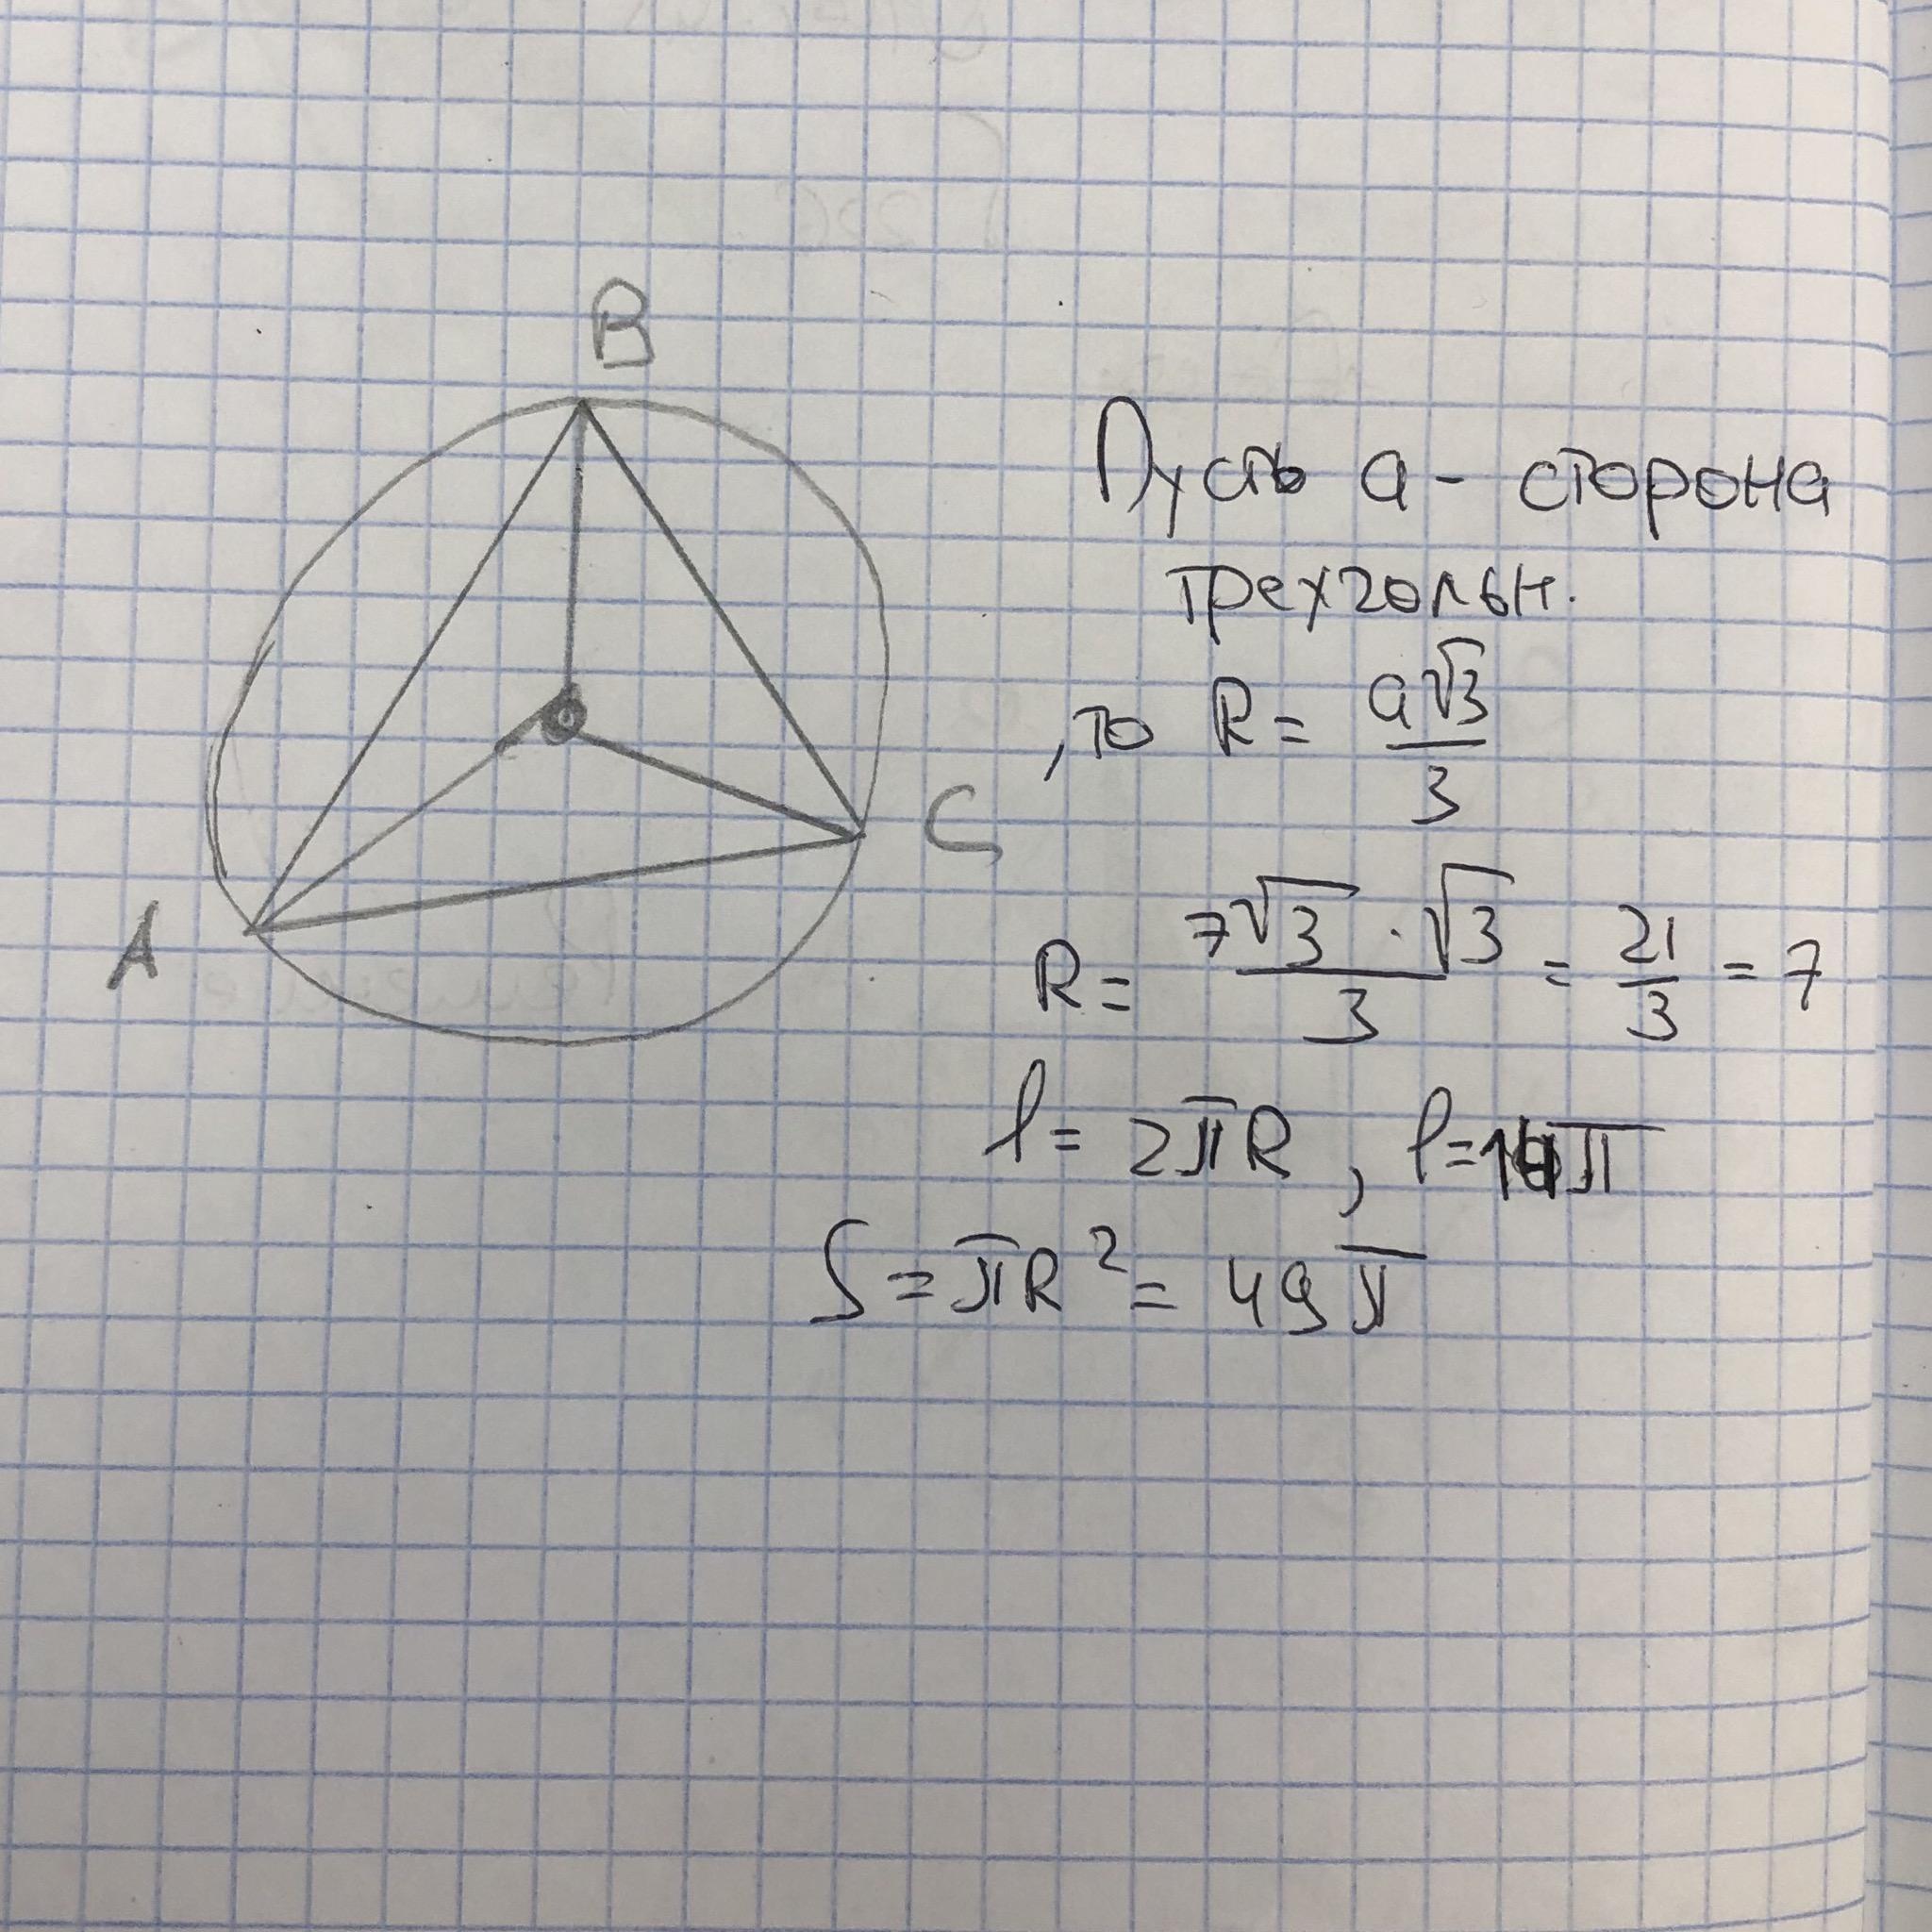 B
A
C
Пусть a - сторона
треугольн.
, то R = a√3/3
R = 7√3 · √3/3 = 21/3 = 7
l = 2πR, l = 14π
S = πR² = 49π